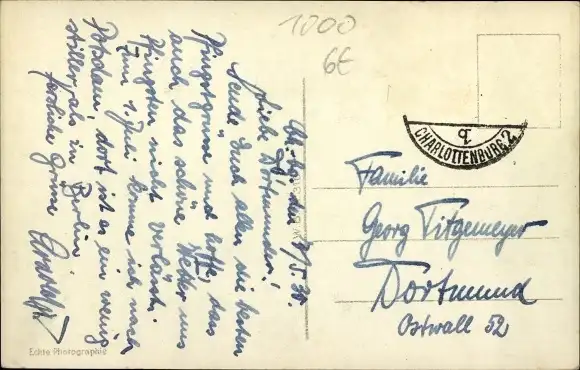 1000
6€
Liebe Dortmunder!
Sende Euch allen die besten
Pfingstgrüsse und hoffe, dass
euch das schöne Wetter uns
Pfingsten nicht verlässt.
Zum 1. Juli komme ich nach
Potsdam, dort ist es ein wenig
stiller, als in Berlin.
Herzliche Grüsse
CHARLOTTENBURG 2
b
Familie
Georg Titgemeyer
Dortmund
Ostwall 52
Echte Photographie